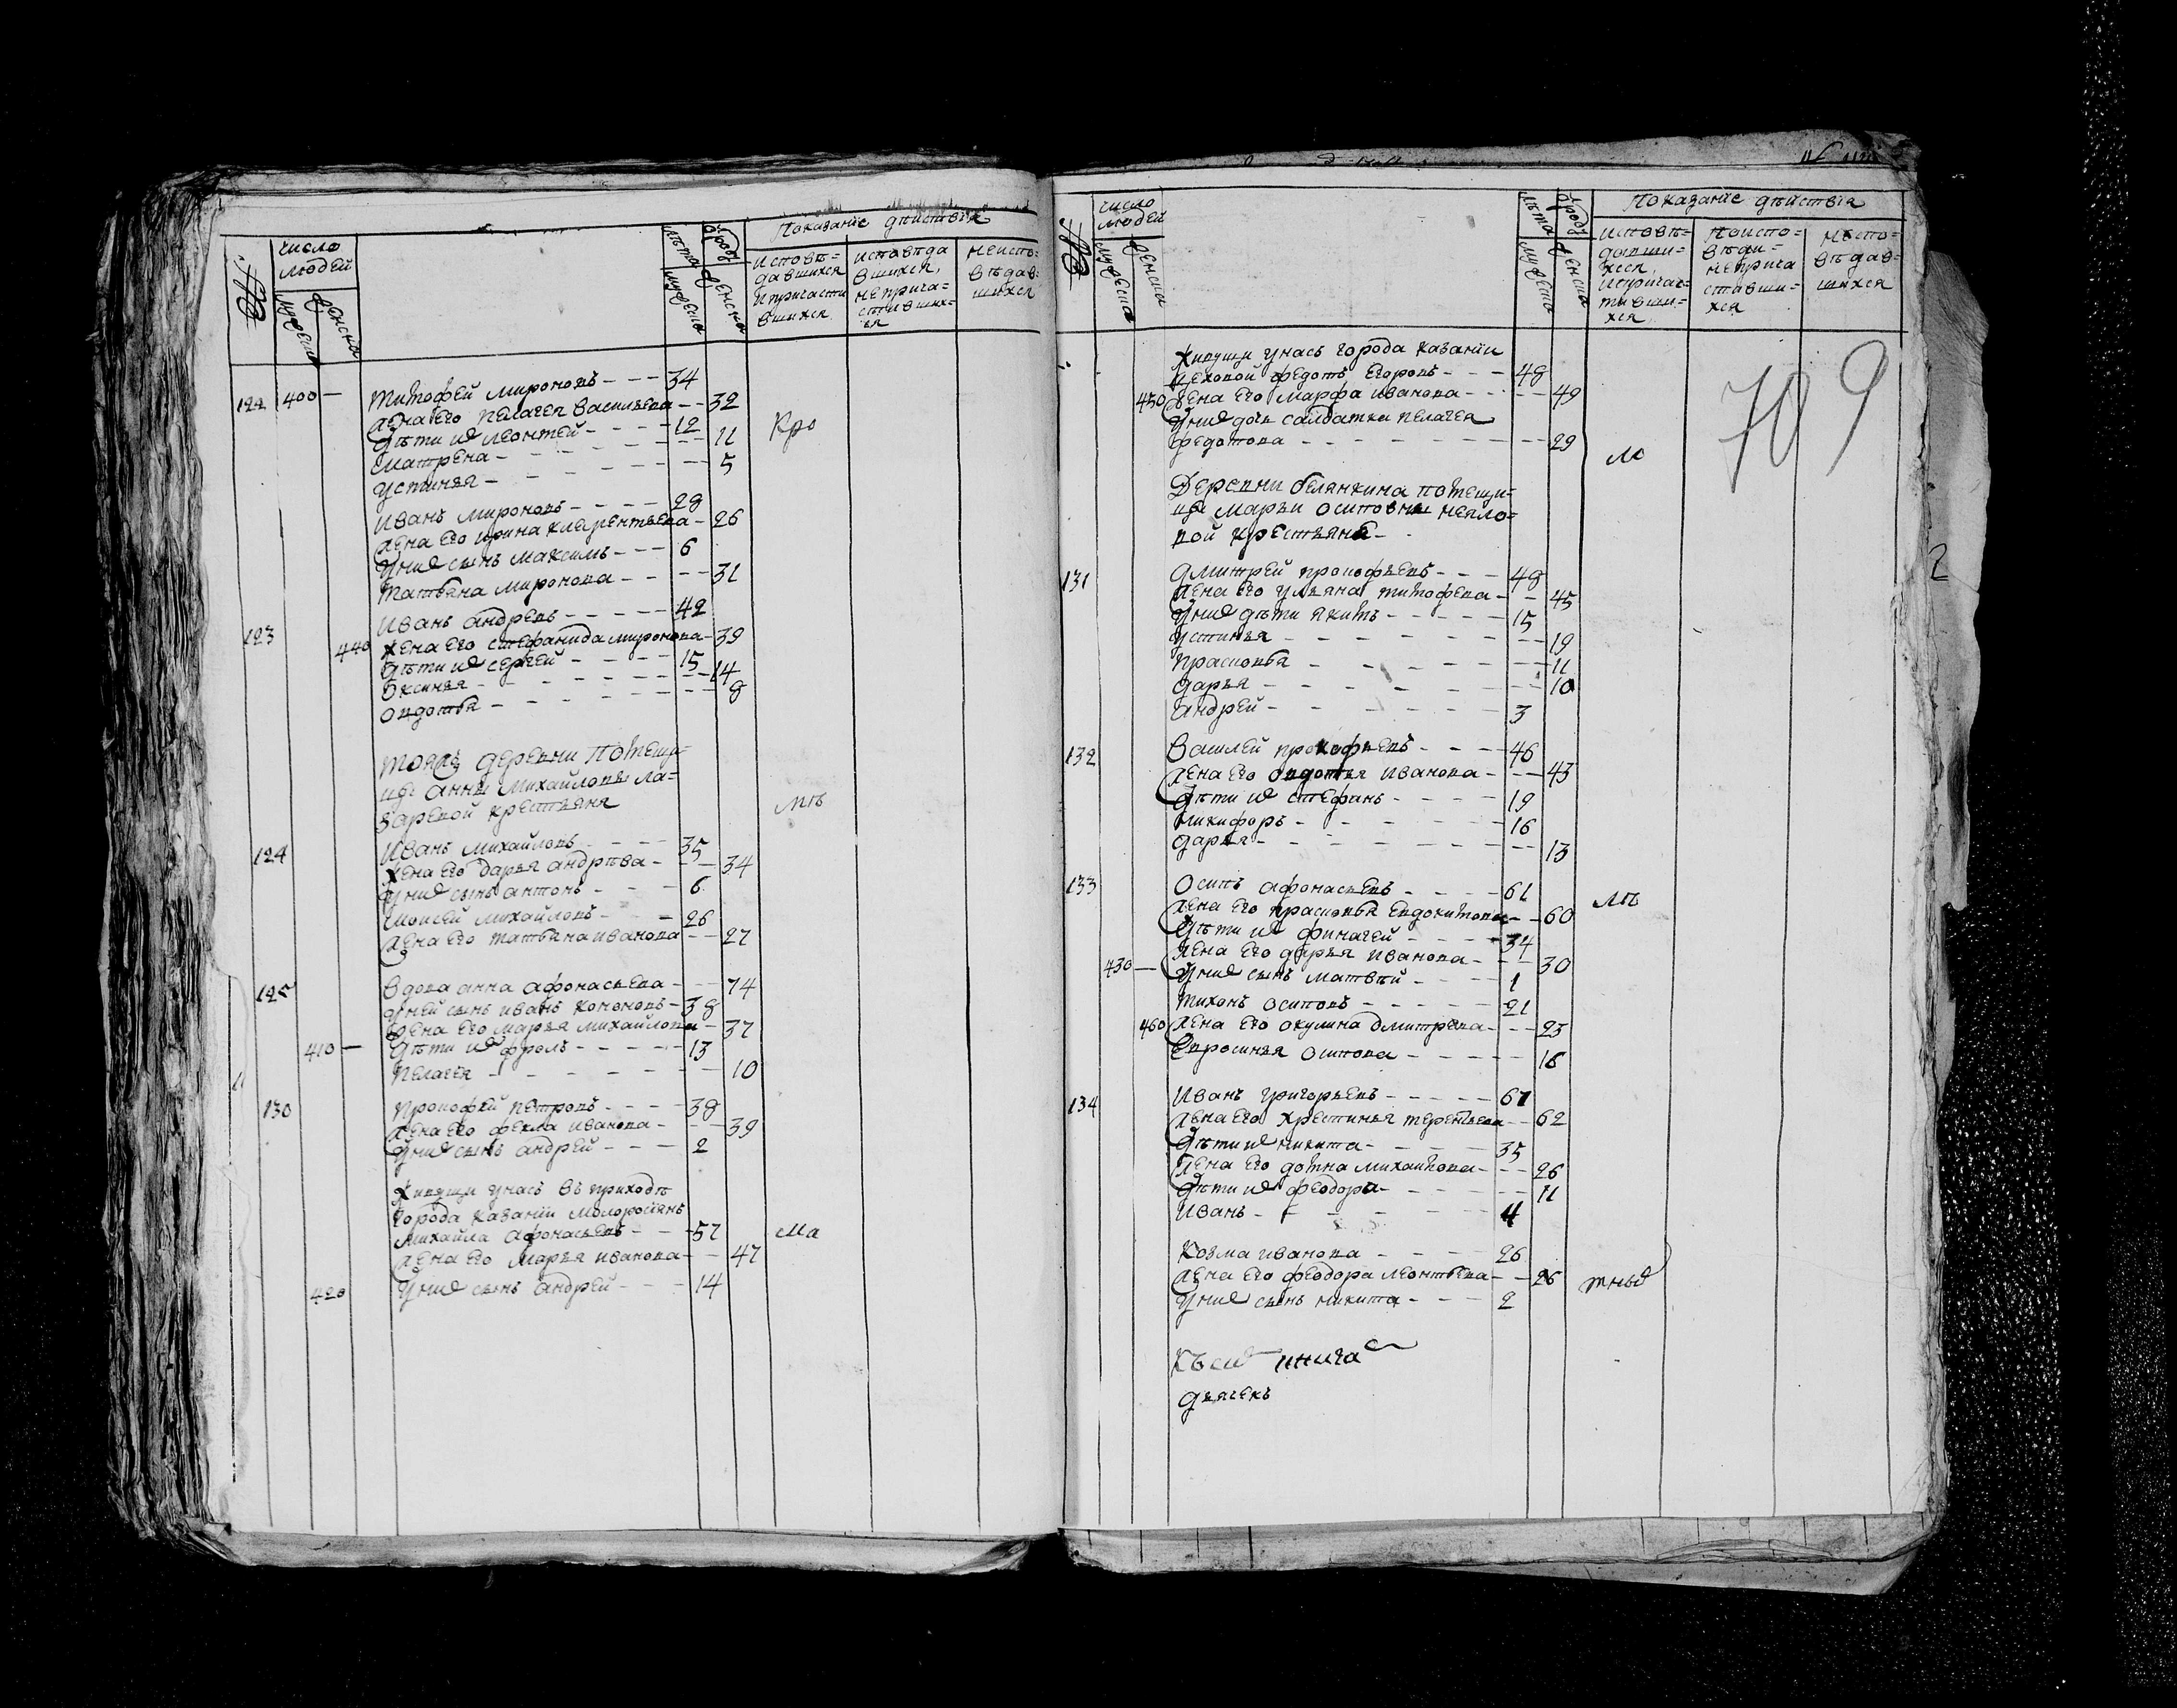 число людей
мужеска
женска
лѣта
мужеска
женска
Показание дѣиствїя
исповѣ=
давшихся
и причасти
вшихся
исповѣда
вшихся,
не прича=
стившихъ=
ся
неиспо=
вѣдав=
шихся
122 400 — Тимофей мироновъ - - - 34
жена его пелагея васильева - - 32
дѣти их леонтей - - - - 12
матрена - - - - 11
устинья - - - - 5
Кро
иванъ мироновъ - - - - 28
жена его ирина климентьева - 26
у них сынъ максимъ - - - 6
татьяна миронова - - - - 31
123 иванъ андреевъ - - - - 42
440 жена его стефанида миронова - 39
дѣти их сергей - - - - 15
Оксинья - - - - 14
овдотья - - - - 8
тояжъ деревни помещи=
цы анны михайловны ла=
заревой крестьяня
мѣ
124 иванъ михайловъ - - - 35
жена его дарья андрѣева - - - 34
у них сынъ антонъ - - - 6
моисей михайловъ - - - 26
жена его татьяна иванова - - 27
125 вдова анна афонасьева - - - 74
у ней сынъ иванъ кононовъ - 38
жена его марья михайлова - 37
410 — дѣти их фролъ - - - - 13
пелагея - - - - 10
130 прокофей петровъ - - - - 38
жена его фекла иванова - - - 39
у них сынъ андрей - - - 2
живущи у насъ въ приходѣ
города казании
михайла афонасьевъ - - - 57
ма
жена его марья иванова - - - 47
420 у них сынъ андрей - - - 14
число людей
мужеска
женска
лѣта
мужеска
женска
Показание дѣиствїя
исповѣ=
давши=
хся
и причас=
тивши=
хся
не прича
ставши=
хся
неиспо=
вѣдав=
шихся
709
живущи у насъ города казании
цеховой федотъ егоровъ - - - 48
450 жена его марфа иванова - - - 49
у них дочь салдатка пелагея
федотова - - - - 29
ло
Деревни белянкина помещи=
цы марьи осиповны неяло=
вой крестьяня -
131 дмитрей прокофьевъ - - - 48
жена его ульяна тимофева - - 45
у них дѣти якимъ - - - - 15
устинья - - - - 19
прасковья - - - - 11
дарья - - - - 10
андрей - - - - 3
132 василей прокофьевъ - - - 46
жена его овдотья иванова - - - 43
дѣти их стефанъ - - - - 19
никифоръ - - - - 16
дарья - - - - 13
133 осипъ афонасьевъ - - - - 61
жена его прасковья евдокимова - - 60
лѣ
дѣти их - - - - 34
жена его дарья иванова - - - 30
430 — у них сынъ матвѣй - - - 1
тихонъ осиповъ - - - - 21
460 жена его окулина дмитрева - - - 23
евросинья осипова - - - - 16
134 иванъ григорьевъ - - - - 67
жена его хрестинья терентьева - - 62
дѣти их никита - - - - 35
жена его домна михайлова - - - 26
дѣти их феодора - - - - 11
иванъ - - - - 4
козма иванова - - - - 26
жена его феодора леонтьева - - 26
тных
у них сынъ никита - - - 2
Къ сих книга
дьячекъ
2